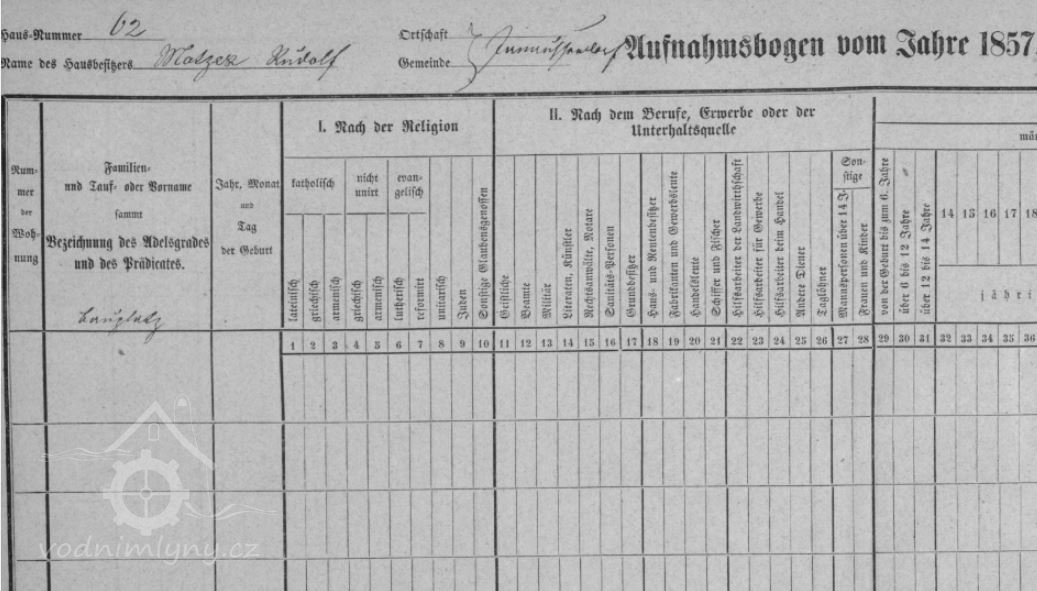 Haus-Nummer 62
Ortschaft
Name des Hausbesitzers Matzek Rudolf
Gemeinde
Aufnahmsbogen vom Jahre 1857.
Num-
mer
der
Woh-
nung
Familien-
und Tauf- oder Vorname
sammt
Bezeichnung des Adelsgrades
und des Prädicates.
Bauplatz
Jahr, Monat
und
Tag
der Geburt
I. Nach der Religion
katholisch
nicht
unirt
evan-
gelisch
lateinisch
griechisch
armenisch
griechisch
armenisch
lutherisch
reformirt
unitarisch
Juden
Sonstige Glaubensgenossen
II. Nach dem Berufe, Erwerbe oder der
Unterhaltsquelle
Geistliche
Beamte
Militär
Literaten, Künstler
Rechtsanwälte, Notare
Sanitäts-Personen
Grundbesitzer
Haus- und Rentenbesitzer
Fabrikanten und Gewerbsleute
Handelsleute
Schiffer und Fischer
Hilfsarbeiter der Landwirthschaft
Hilfsarbeiter für Gewerbe
Hilfsarbeiter beim Handel
Andere Diener
Taglöhner
Son-
stige
Mannspersonen über 14 J.
Frauen und Kinder
män
von der Geburt bis zum 6. Jahre
über 6 bis 12 Jahre
über 12 bis 14 Jahre
14 15 16 17 18
jähri
1 2 3 4 5 6 7 8 9 10 11 12 13 14 15 16 17 18 19 20 21 22 23 24 25 26 27 28 29 30 31 32 33 34 35 36
vodnimlyny.cz